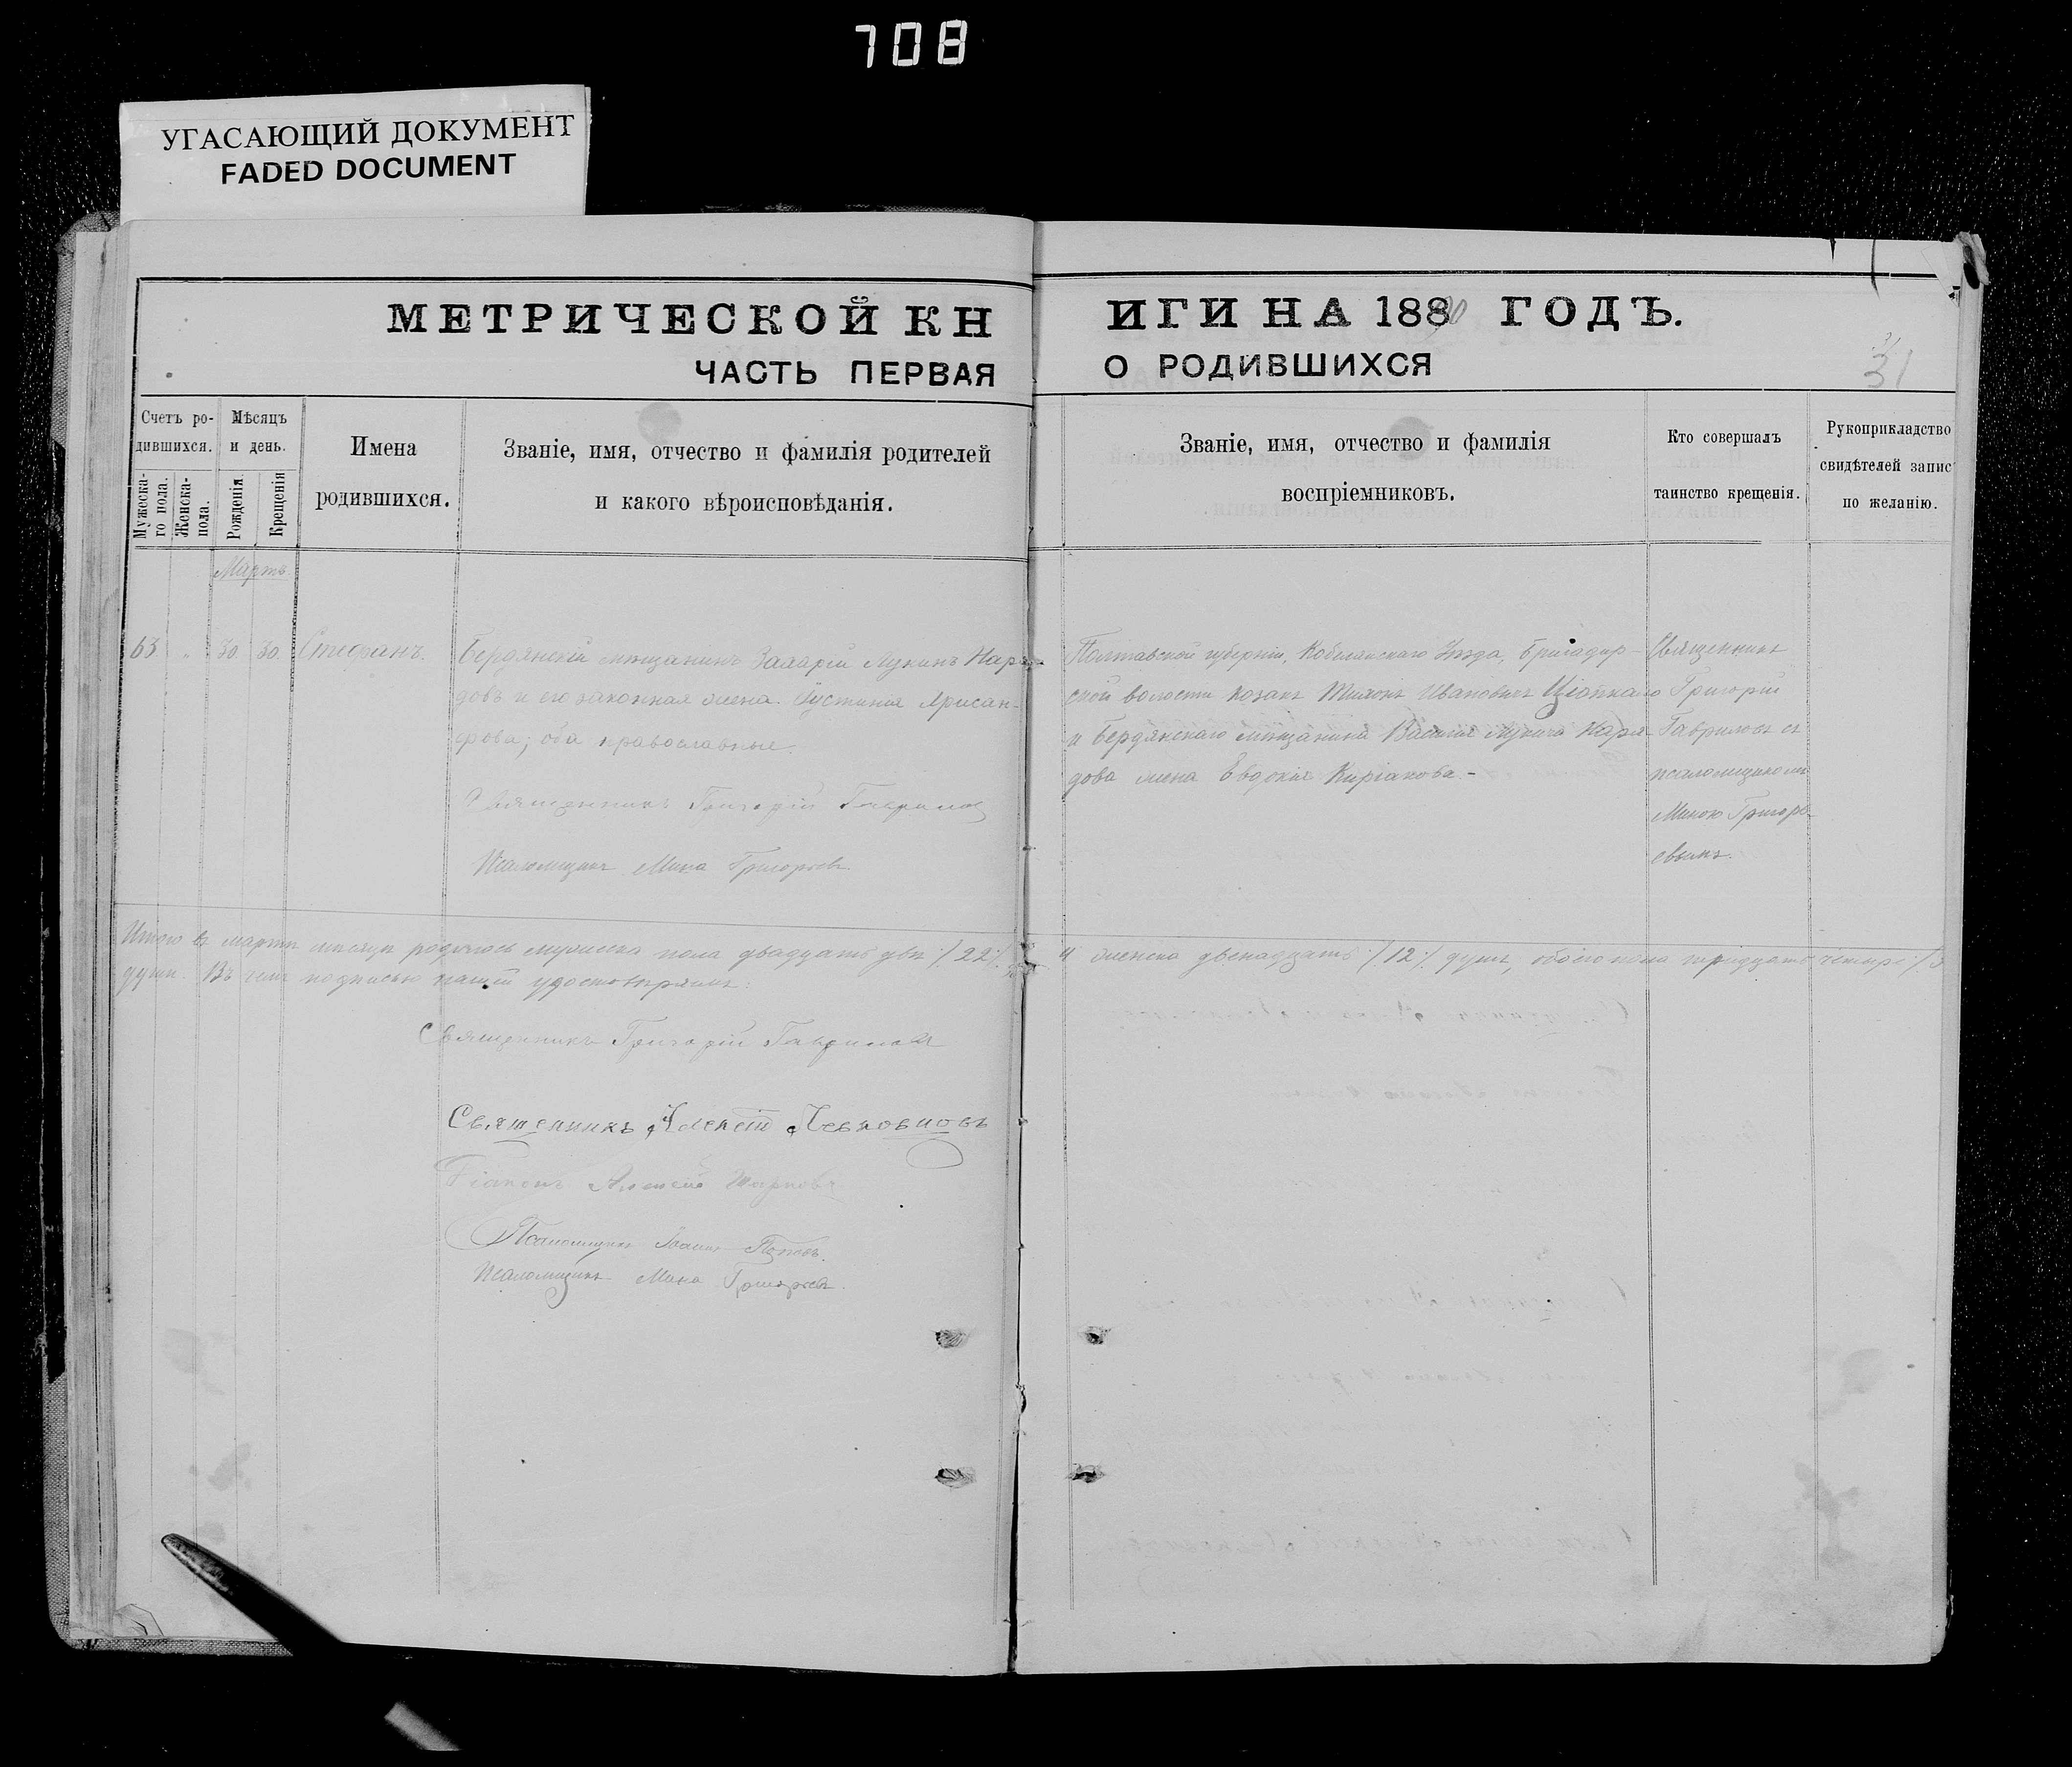 708
УГАСАЮЩИЙ ДОКУМЕНТ
FADED DOCUMENT
МЕТРИЧЕСКОЙ КНИГИ НА 1890 ГОДЪ.
ЧАСТЬ ПЕРВАЯ О РОДИВШИХСЯ
31
Счетъ ро-
дившихся.
Мужеска-
го пола.
Женска-
пола.
Мѣсяцъ
и день.
Рожденія.
Крещенія
Имена
родившихся.
Званіе, имя, отчество и фамилія родителей
и какого вѣроисповѣданія.
Званіе, имя, отчество и фамилія
воспріемниковъ.
Кто совершалъ
таинство крещенія.
Рукоприкладство
свидѣтелей запис
по желанію.
Мартъ
63 " 30 30 Стефанъ.
Бердянскій мѣщанинъ Захарій Лукинъ Каря-
довъ и его законная жена Іустинія
оба православные.
Священникъ Григорій Гавриловъ
Псаломщикъ Мина Григорьевъ
Полтавской губерніи, Кобелякскаго Уѣзда, Бригадир-
ской волости козакъ Тихонъ Ивановичъ
и Бердянскаго мѣщанина Василія Лукича Каря-
дова жена Евдокія Киріакова.-
Священникъ
Григорій
Гавриловъ съ
псаломщикомъ
Миною Григорь-
евымъ.
Итого въ мартѣ мѣсяцѣ родилось мужеска пола двадцать двѣ /22/ и женска двенадцать /12/ душъ, обоего пола тридцать четыре
души. Въ чемъ подписью нашей удостовѣряемъ:
Священникъ Григорій Гавриловъ
Священникъ Алексій Левковцовъ
Діаконъ Алексій
Псаломщикъ Іоаннъ Поповъ.
Псаломщикъ Мина Григорьевъ.